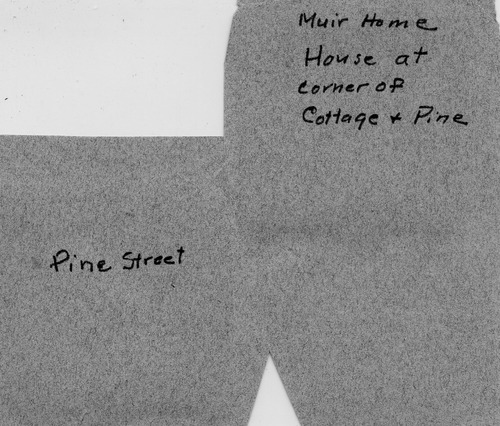 Muir Home
House at
corner of
Cottage + Pine
Pine Street